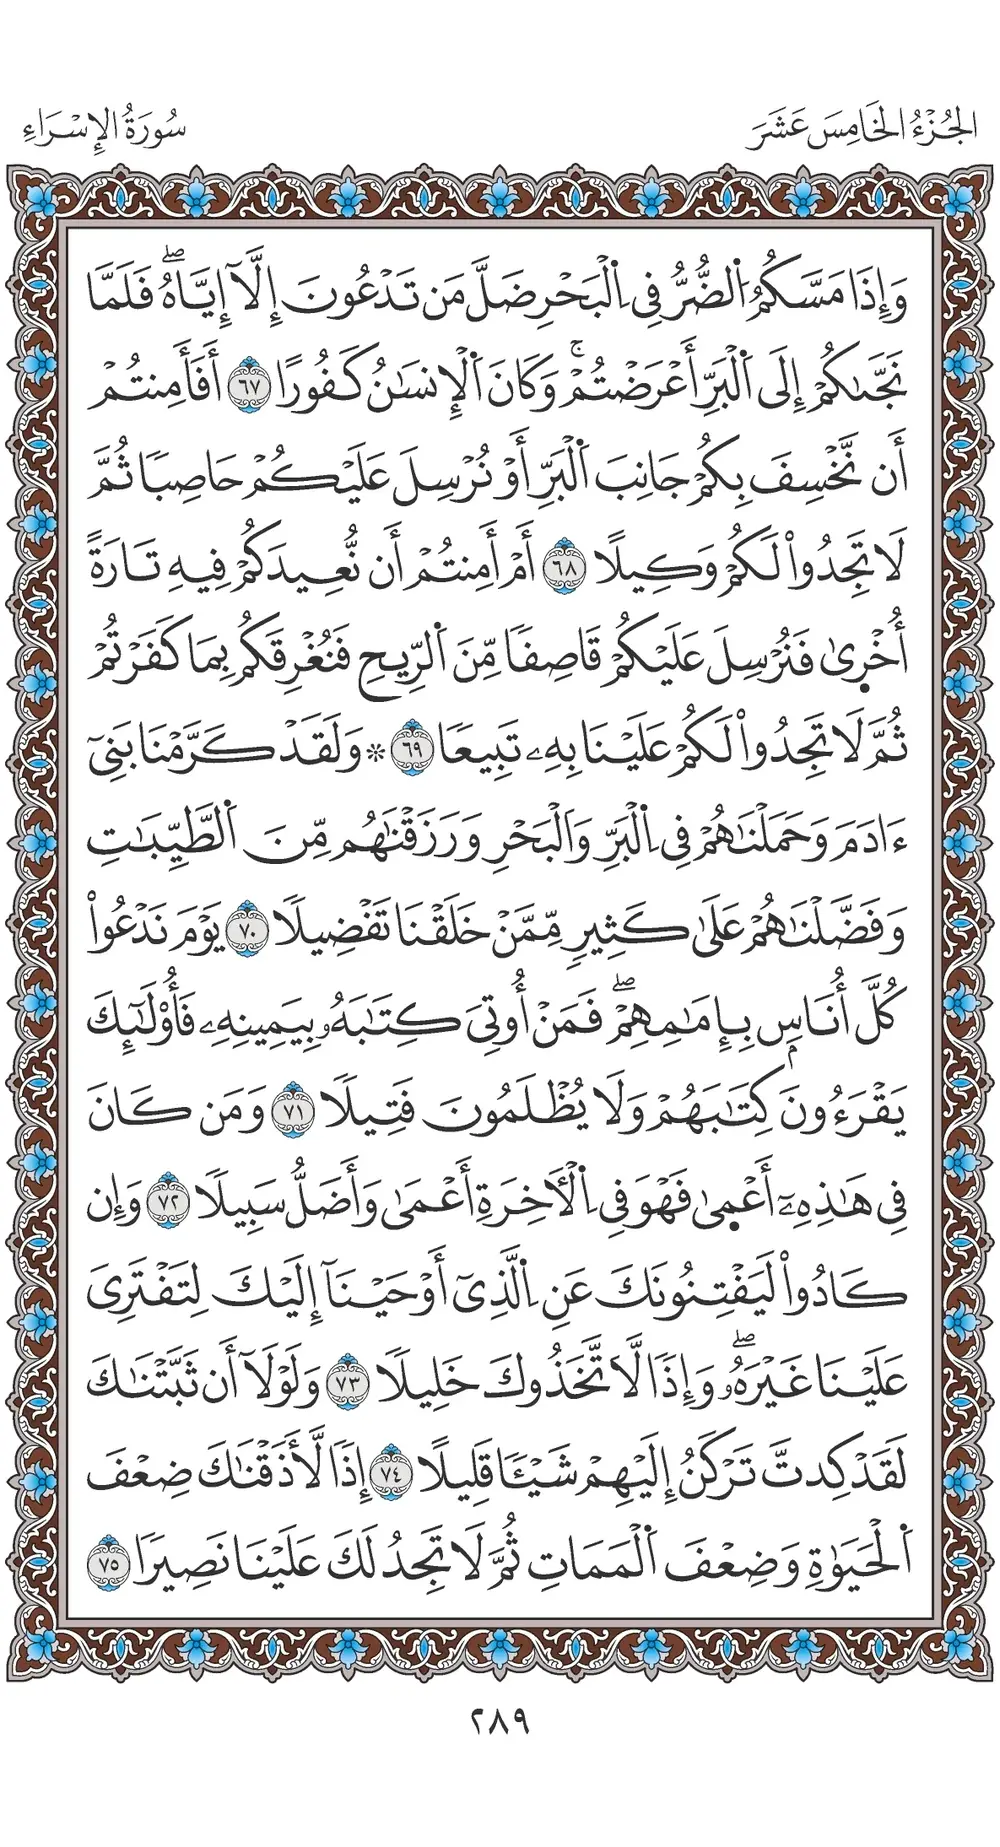 الجُزْءُ الخَامِسَ عَشَرَ
سُورَةُ الإِسْرَاءِ
وَإِذَا مَسَّكُمُ اُ۬لضُّرُّ فِے اِ۬لْبَحْرِ ضَلَّ مَن تَدْعُونَ إِلَّآ إِيَّاهُۖ فَلَمَّا
نَجَّىٰكُمْ إِلَى اَ۬لْبَرِّ أَعْرَضْتُمْۚ وَكَانَ اَ۬لْإِنسَٰنُ كَفُورًا ٦٧ أَفَأَمِنتُمْ
أَن نَّخْسِفَ بِكُمْ جَانِبَ اَ۬لْبَرِّ أَوْ نُرْسِلَ عَلَيْكُمْ حَاصِبًا ثُمَّ
لَا تَجِدُوا۟ لَكُمْ وَكِيلًا ٦٨ أَمْ أَمِنتُمْ أَن نُّعِيدَكُمْ فِيهِ تَارَةً
أُخْر۪ىٰ فَنُرْسِلَ عَلَيْكُمْ قَاصِفًا مِّنَ اَ۬لرِّيحِ فَنُغْرِقَكُم بِمَا كَفَرْتُمْ
ثُمَّ لَا تَجِدُوا۟ لَكُمْ عَلَيْنَا بِهِۦ تَبِيعًا ٦٩ ۞ وَلَقَدْ كَرَّمْنَا بَنِيٓ
ءَادَمَ وَحَمَلْنَٰهُمْ فِي اِ۬لْبَرِّ وَالْبَحْرِ وَرَزَقْنَٰهُم مِّنَ اَ۬لطَّيِّبَٰتِ
وَفَضَّلْنَٰهُمْ عَلَىٰ كَثِيرٍ مِّمَّنْ خَلَقْنَا تَفْضِيلًا ٧٠ يَوْمَ نَدْعُوا۟
كُلَّ أُنَاسِۭ بِإِمَٰمِهِمْۖ فَمَنْ أُوتِيَ كِتَٰبَهُۥ بِيَمِينِهِۦ فَأُو۟لَٰٓئِكَ
يَقْرَءُونَ كِتَٰبَهُمْ وَلَا يُظْلَمُونَ فَتِيلًا ٧١ وَمَن كَانَ
فِي هَٰذِهِۦٓ أَعْم۪ىٰ فَهْوَ فِي اِ۬لْأٓخِرَةِ أَعْمَىٰ وَأَضَلُّ سَبِيلًا ٧٢ وَإِن
كَادُوا۟ لَيَفْتِنُونَكَ عَنِ اِ۬لَّذِيٓ أَوْحَيْنَآ إِلَيْكَ لِتَفْتَرِيَ
عَلَيْنَا غَيْرَهُۥۖ وَإِذًا لَّاتَّخَذُوكَ خَلِيلًا ٧٣ وَلَوْلَآ أَن ثَبَّتْنَٰكَ
لَقَدْ كِدتَّ تَرْكَنُ إِلَيْهِمْ شَيْـًٔا قَلِيلًا ٧٤ إِذًا لَّأَذَقْنَٰكَ ضِعْفَ
اَ۬لْحَيَوٰةِ وَضِعْفَ اَ۬لْمَمَاتِ ثُمَّ لَا تَجِدُ لَكَ عَلَيْنَا نَصِيرًا ٧٥
٢٨٩